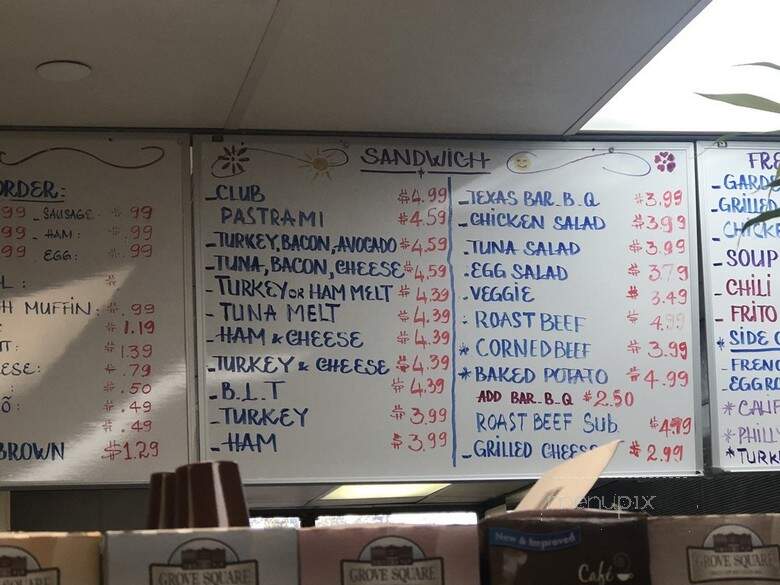 ORDER:
99 - SAUSAGE # .99
99 - HAM: # .99
99 EGG: # .99
MUFFIN: # .99
# 1.19
# 1.39
# .79
# .50
# .49
# .49
BROWN $1.29
SANDWICH
- CLUB $4.99
PASTRAMI $4.59
- TURKEY, BACON, AVOCADO $4.59
- TUNA, BACON, CHEESE $4.59
- TURKEY OR HAM MELT $4.39
- TUNA MELT $4.39
- HAM & CHEESE $4.39
- TURKEY & CHEESE $4.39
- B.L.T $4.39
- TURKEY $3.99
- HAM $3.99
- TEXAS BAR.B.Q $3.99
- CHICKEN SALAD $3.99
- TUNA SALAD $3.99
- EGG SALAD $3.79
- VEGGIE $3.49
- ROAST BEEF $4.99
* CORNED BEEF $3.99
* BAKED POTATO $4.99
ADD BAR.B.Q $2.50
ROAST BEEF Sub.
- GRILLED CHEESE $2.99
- GRILLED
- SOUP
- CHILI
- FRITO
* SIDE
- FRENC
- EGGRO
* CALIF
* PHILLY
* TURK
menupix
New & Improved
Café
GROVE SQUARE
GROVE SQUARE
GROVE SQUARE